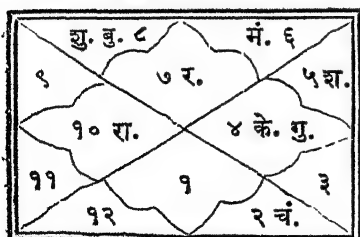 शु. बु. ८ मं. ६
९ ७ र. ५ श.
१० रा. ४ के. गु.
११ १ ३
१२ २ चं.